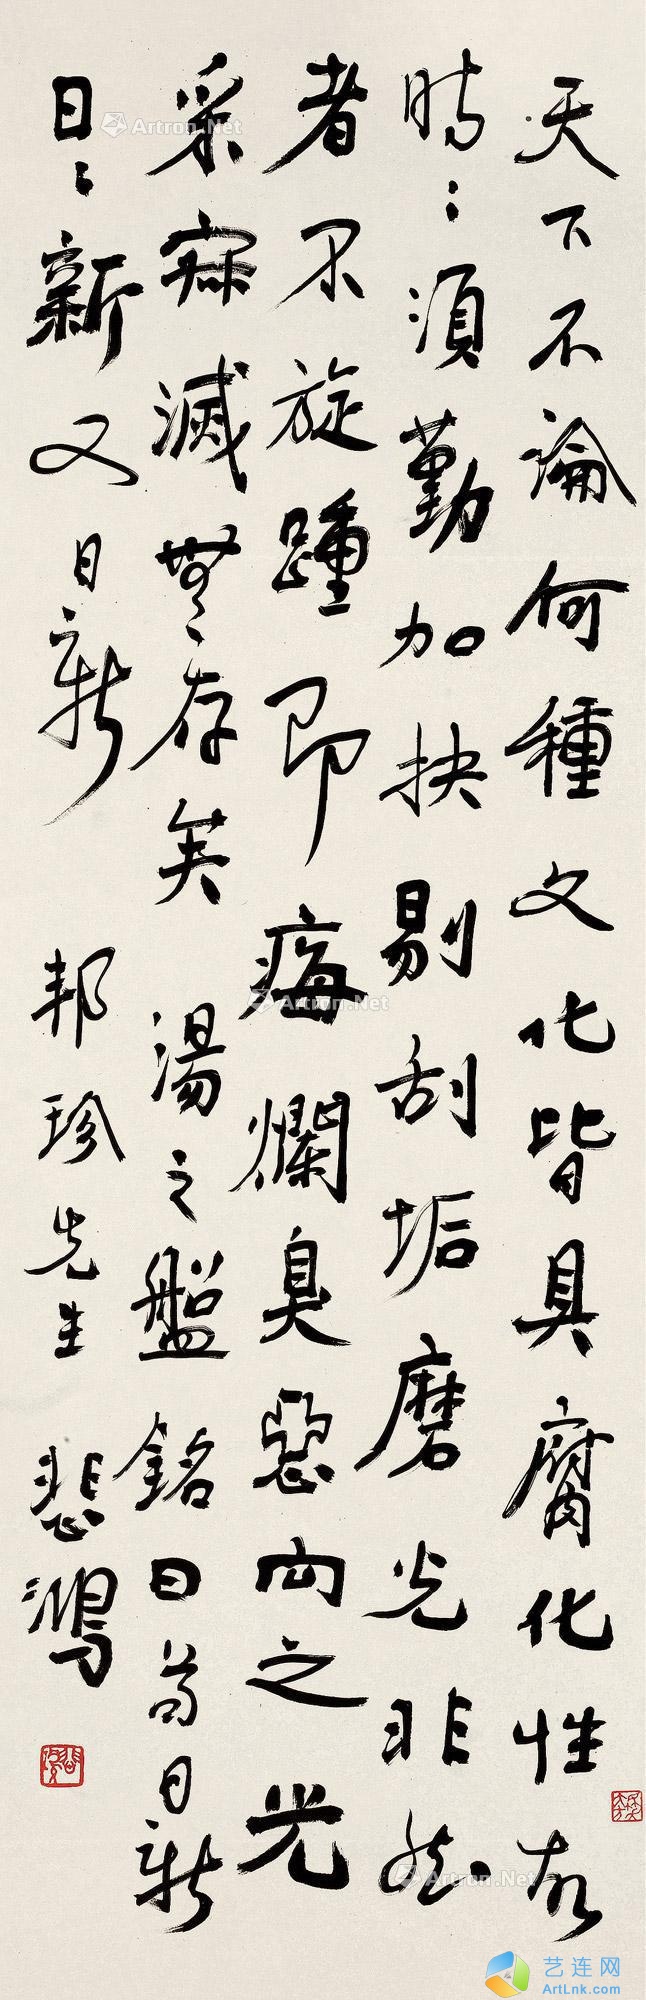 天下不論何種文化皆具腐化性故
時々須勤加抉剔刮垢磨光非然
者不旋踵即痗爛臭惡向之光
采寂滅無存矣 湯之盤銘曰苟日新
日々新又日新 邦珍先生 悲鴻
Artron.Net
Artron.Net
Artron.Net
艺连网
ArtLnk.com